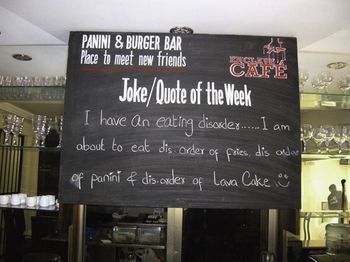 PANINI & BURGER BAR
Place to meet new friends
ENCLAVE'S
CAFÉ
Joke/Quote of the Week
I have an eating disorder.....I am
about to eat dis order of fries, dis order
of panini & dis.order of Lava Cake.